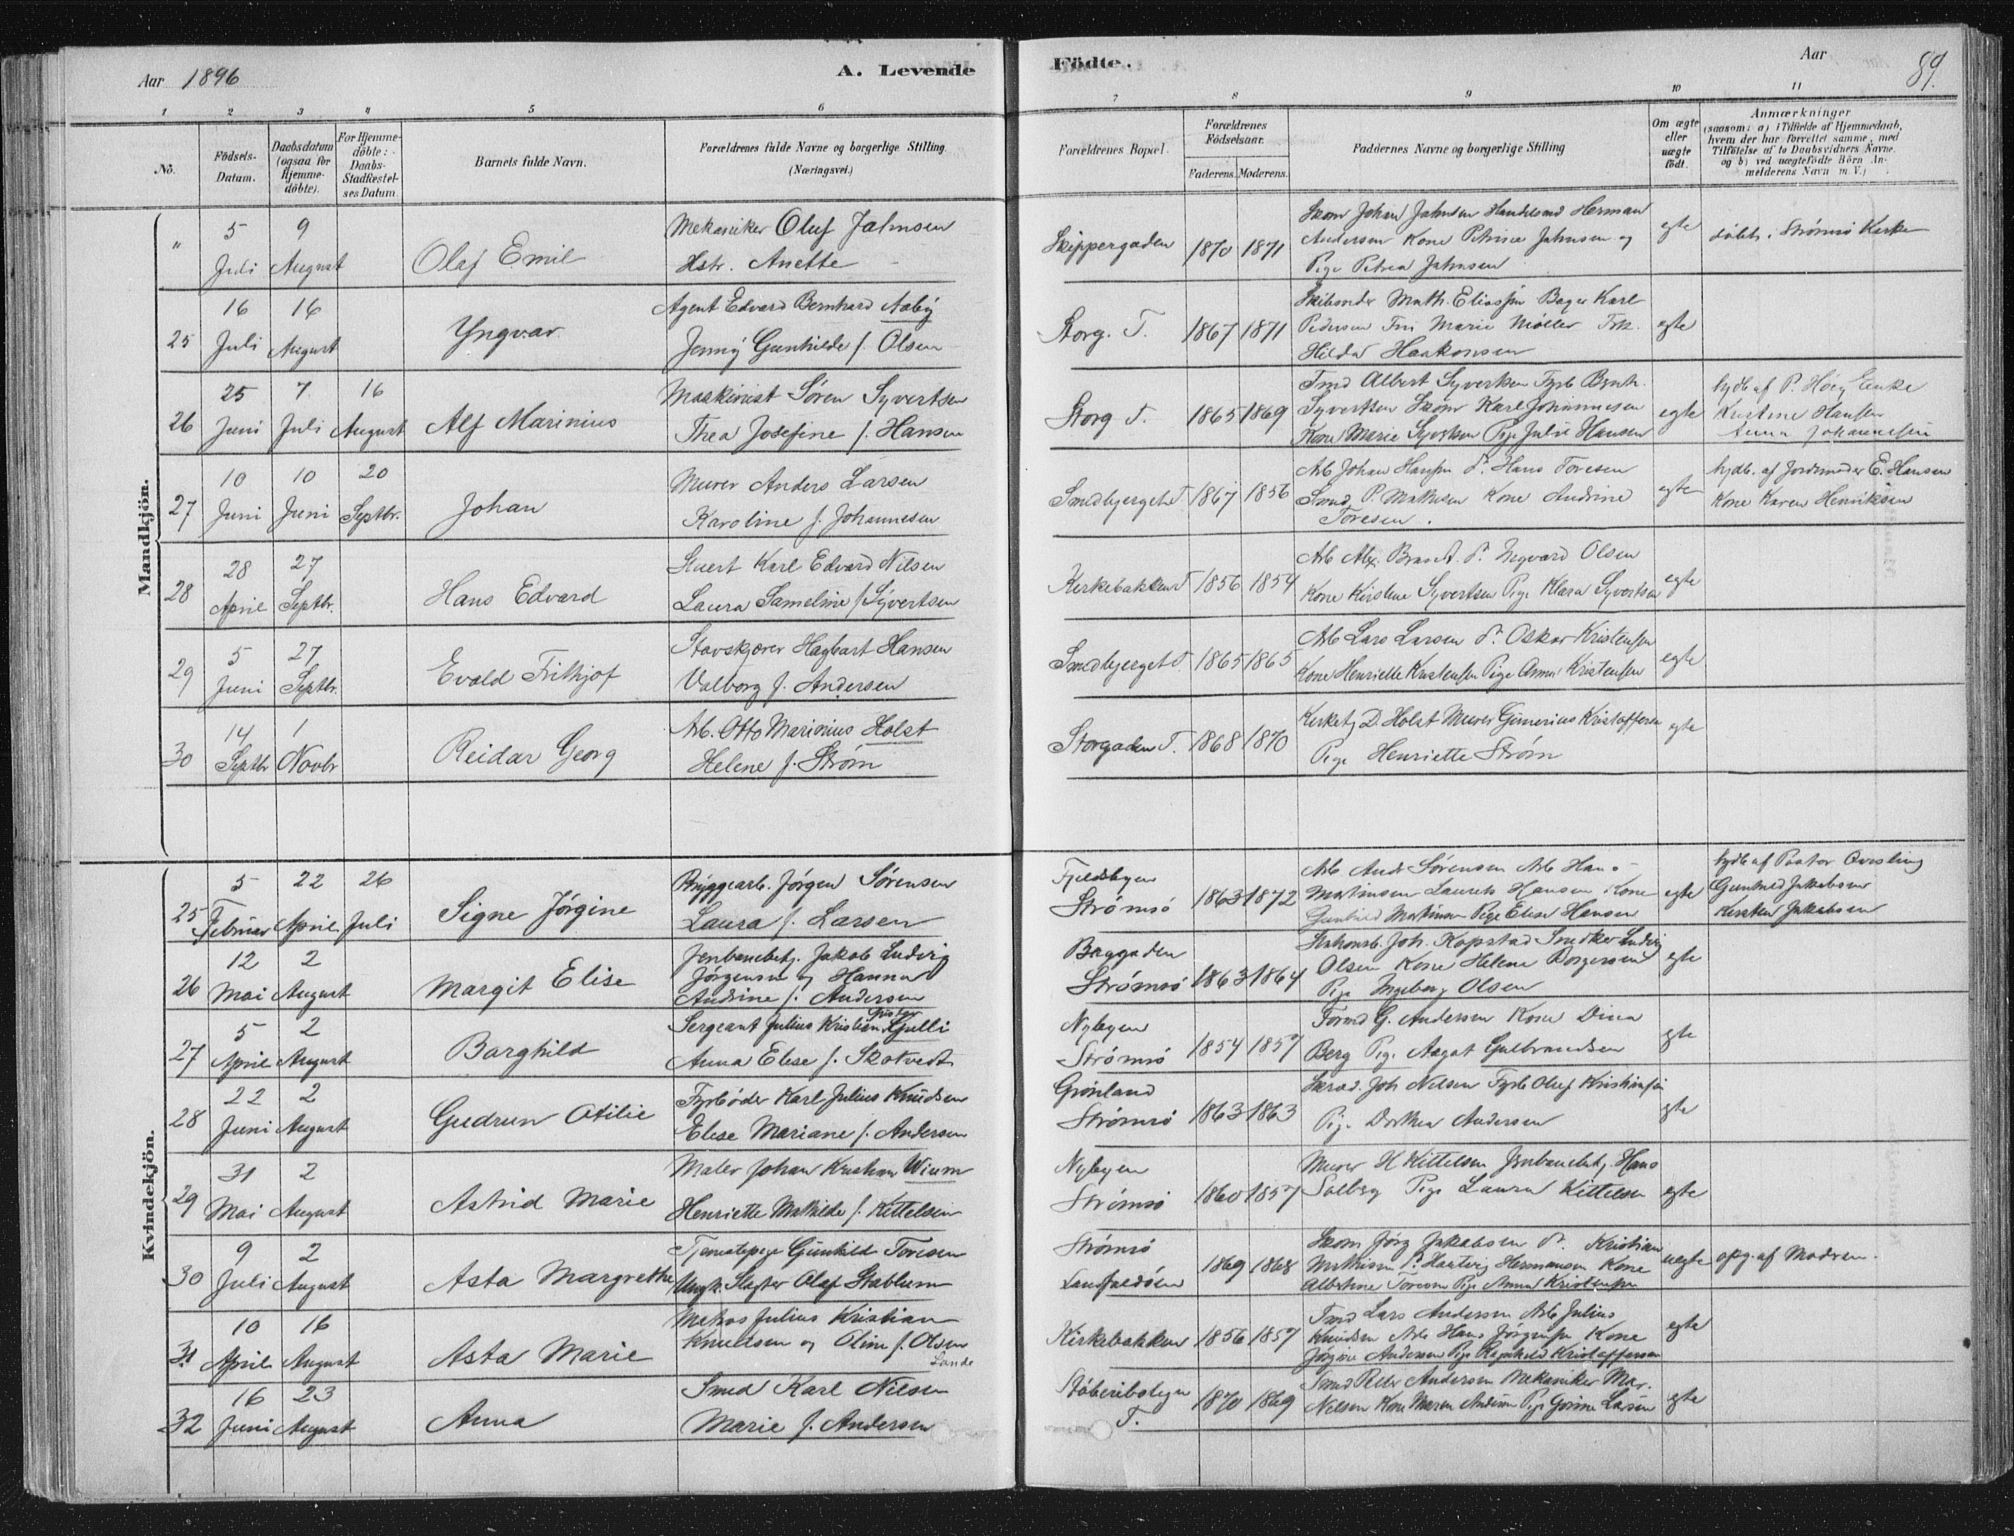 Aar 1896
A. Levende Födte.
Aar
89.
1 2 3 4 5 6 7 8 9 10 11
No.
Födsels-Datum.
Daabsdatum (ogsaa for Hjemmedöbte).
For Hjemmedöbte: Daabs-Stadfæstelses Datum
Barnets fulde Navn.
Forældrenes fulde Navne og borgerlige Stilling. (Næringsvei.)
Forældrenes Bopæl.
Forældrenes Födselsaar.
Faderens. Moderens.
Faddernes Navne og borgerlige Stilling
Om ægte eller uægte födt.
Anmærkninger
(saasom: a) i Tilfælde af Hjemmedaab, hvem der har forrettet samme, med Tilföielse af to Daabsvidners Navne. og b) ved uægtefödte Börn Anmelderens Navn m. V.)
Mandkjön.
" 5 Juli 9 August Olaf Emil
Mekaniker Oluf Jahnsen
Hstr. Anette
Skippergaden 1870 1871
Skom Johan Jahnsen Handelsmd Herman
Andersen Kone Petrine Jahnsen og
Pige Petrea Jahnsen
egte
döbt i Strömsö Kirke
25 16 Juli 16 August Yngvar
Agent Edvard Bernhard Aaby
Jenny Gunhilde f. Olsen
Storg. T. 1867 1871
Math. Eliassen Bager Karl
Pedersen Fru Marie Möller Frk.
Hilda Haakonsen
egte
26 25 Juni 7. Juli 16 August Alf Marinius
Maskinist Sören Syvertsen
Thea Josefine f. Hansen
Storg T. 1865 1869
Tmd Albert Syvertsen Fyrb Bernh.
Syvertsen Skom Karl Johannesen
Kone Marie Syvertsen Pige Julie Hansen
egte
hjdb af P. Höeg Enke
Kirstine Hansen
Anna Johannesen
27 10 Juni 10 Juni 20 Septbr. Johan
Murer Anders Larsen
Karoline f. Johannesen
Smedbjerget T 1867 1856
Arb Johan Hansen P. Hans Toresen
Smed P. Mathisen Kone Andrine
Toresen.
egte
hjdb. af Jordemoder E. Hansen
Kone Karen Henriksen
28 28 April 27 Septbr. Hans Edvard
Stuert Karl Edvard Nilsen
Laura Sameline f. Syvertsen
Kirkebakken T 1856 1854
Arb Alex. P. Ingvard Olsen
Kone Kirstine Syvertsen Pige Klara Syvertsen
egte
29 5 Juni 27 Septbr. Evald Frithjof
Stavskjærer Hagbart Hansen
Valborg f. Andersen
Smedbjerget T 1865 1865
Arb Lars Larsen P. Oskar Kristensen
Kone Henriette Kristensen Pige Anna Kristensen
egte
30 14 Septbr 1 Novbr Reidar Georg
Arb. Otto Marinius Holst
Helene f. Ström
Storgaden T. 1868 1870
Kirketj D. Holst Murer Kristoffersen
Pige Henriette Ström
egte
Kvindekjön.
25 5 Februar 22 April 26 Juli Signe Jörgine
Bryggearb. Jörgen Sörensen
Laura f. Larsen
Fjeldbyen
Strömsö 1863 1872
Arb Andr Sörensen Arb Hans
Martinsen Laurits Hansen Kone
Gunhild Martinsen Pige Elise Hansen
egte
hjdb af Pastor Qvisling
Gunhild Jakobsen
Kirsten Jakobsen
26 12 Mai 2 August Margit Elise
Jernbanebetj. Jakob Ludvig
Jörgensen og Hanna
Andrine f. Andersen
Baggaden
Strömsö 1863 1864
Stationsb. Joh. Kopstad Snedker Ludvig
Olsen Kone Helene Borgersen
Pige Ingeborg Olsen
egte
27 5 April 2 August Borghild
Sergeant Julius Kristian Gjulli
Anna Elise f. Skotvedt
Nybyen
Strömsö 1854 1857
Formd G. Andersen Kone Dina
Berg Pige Aagot Gulbrandsen
egte
28 22 Juni 2 August Gudrun Otilie
Fyrböder Karl Julius Knudsen
Elise Mariane f. Andersen
Grönland
Strömsö 1863 1863
Skræd. Joh Nilsen Fyrb Oluf Kristiansen
Pige Dorthea Andersen
egte
29 31 Mai 2 August Astrid Marie
Maler Johan Kristian Wium
Henriette Mathilde f. Kittelsen
Nybyen
Strömsö 1860 1857
Murer H Kittelsen Jernbanebetj Hans
Solberg Pige Laura Kittelsen
egte
30 9 Juli 2 August Asta Margrethe
Tjenestepige Gunhild Toresen
Ungk. Slagter Olaf Stablum
Strömsö
Landfaldöen 1869 1868
Skom Jörg Jakobsen P. Kristian
Mathisen P. Hartvig Hermansen Kone
Albertine Toresen Pige Anna Kristensen
uegte
opg. af Modren.
31 10 April 16 August Asta Marie
Matros Julius Kristian
Knudsen og Oline f. Olsen
Lande
Kirkebakken 1856 1857
Tmd Lars Andersen Arb Julius
Knudsen Arb Hans Jörgensen Kone
Jörgine Andersen Pige Ragnhild Kristoffersen
egte
32 16 Juni 23 August Anna
Smed Karl Nilsen
Marie f. Andersen
Stöberibakken
T. 1870 1869
Smed Peder Andersen Mekaniker Mar.
Nilsen Kone Maren Andersen Pige Gorine Larsen
egte